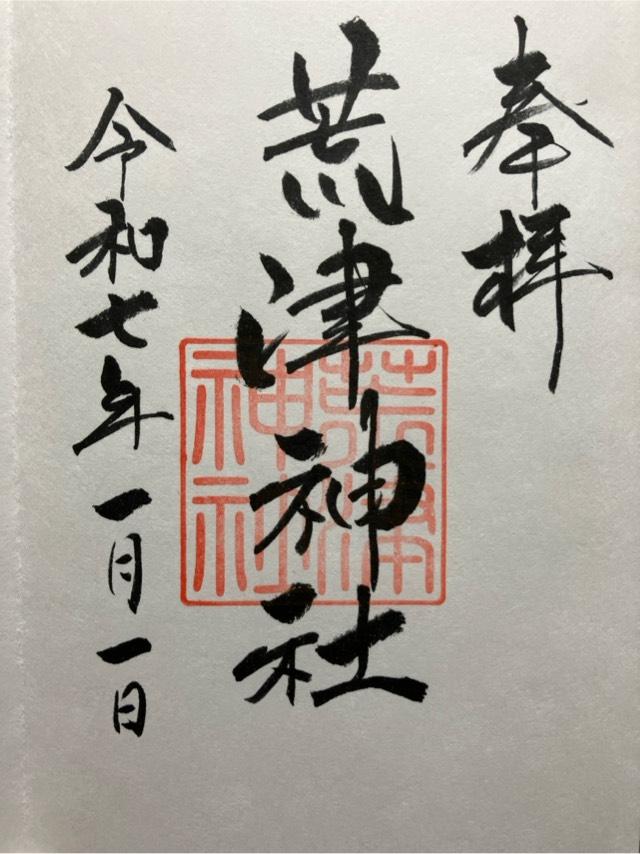 奉拝
荒津神社
令和七年一月一日
荒津神社